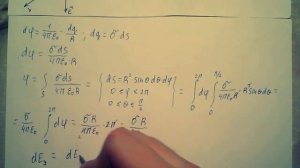 dE
dφ = 1/(4πε₀) · dq/R ; dq = σ dS
dφ = σ dS/(4πε₀R)
φ = ∫∫ σ dS/(4πε₀R) = { dS = R² sinθ dθ dφ ; 0 ≤ φ ≤ 2π ; 0 ≤ θ ≤ π/2 } = ∫₀^{2π} dφ ∫₀^{π/2} σ/(4πε₀R) · R² sinθ dθ =
= σ/(4πε₀) ∫₀^{2π} dφ = σR/(4πε₀) · 2π = σR
dE₃ = dE